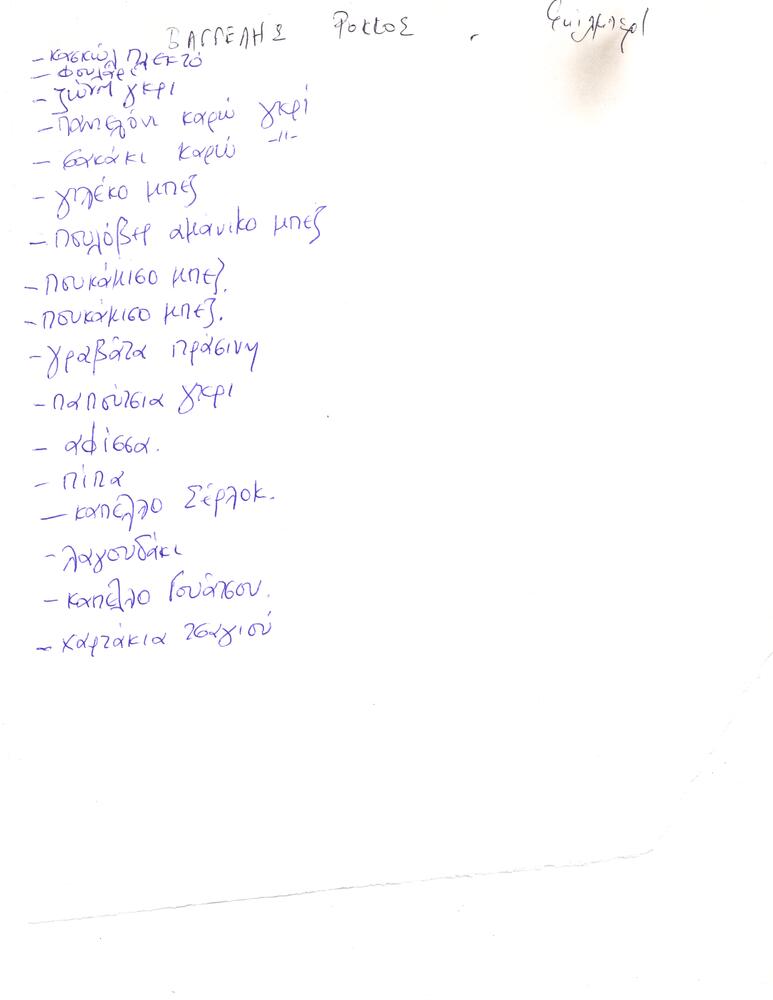 ΒΑΓΓΕΛΗΣ Ρόκκος , Φικίλμπερι
- κασκώλ πλεκτό
- φουλάρι
- ζώνη γκρι
- παντελόνι καρώ γκρί
- σακάκι καρώ -//-
- γιλέκο μπεζ
- πουλόβερ αμάνικο μπεζ
- πουκάμισο μπεζ.
- πουκάμισο μπεζ.
- γραβάτα πράσινη
- παπούτσια γκρι
- αφίσσα.
- πίπα
- καπέλλο Σέρλοκ.
- λαγουδάκι
- καπέλλο Γουάτσον.
- χαρτάκια τσαγιού